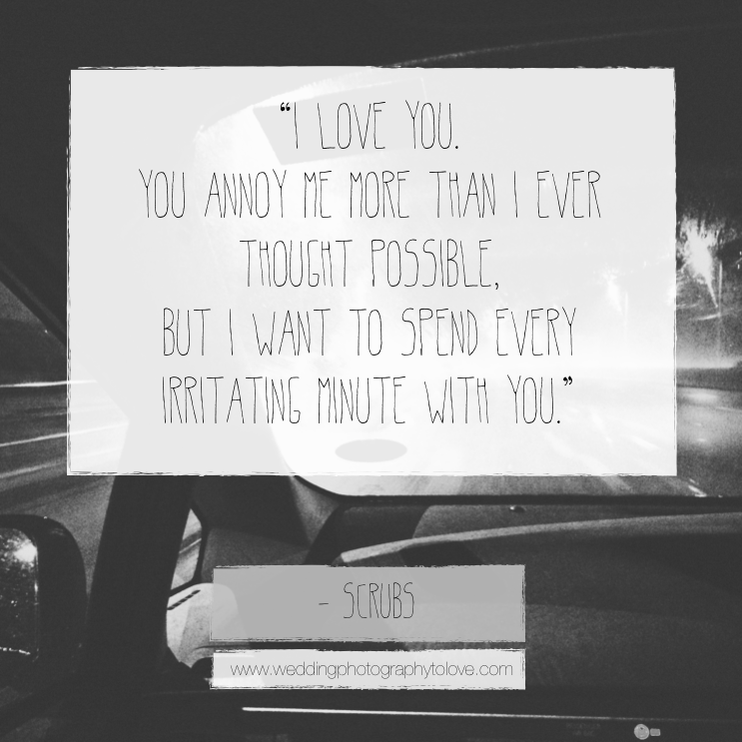 “I LOVE YOU.
YOU ANNOY ME MORE THAN I EVER
THOUGHT POSSIBLE,
BUT I WANT TO SPEND EVERY
IRRITATING MINUTE WITH YOU.”
- SCRUBS
www.weddingphotographytolove.com